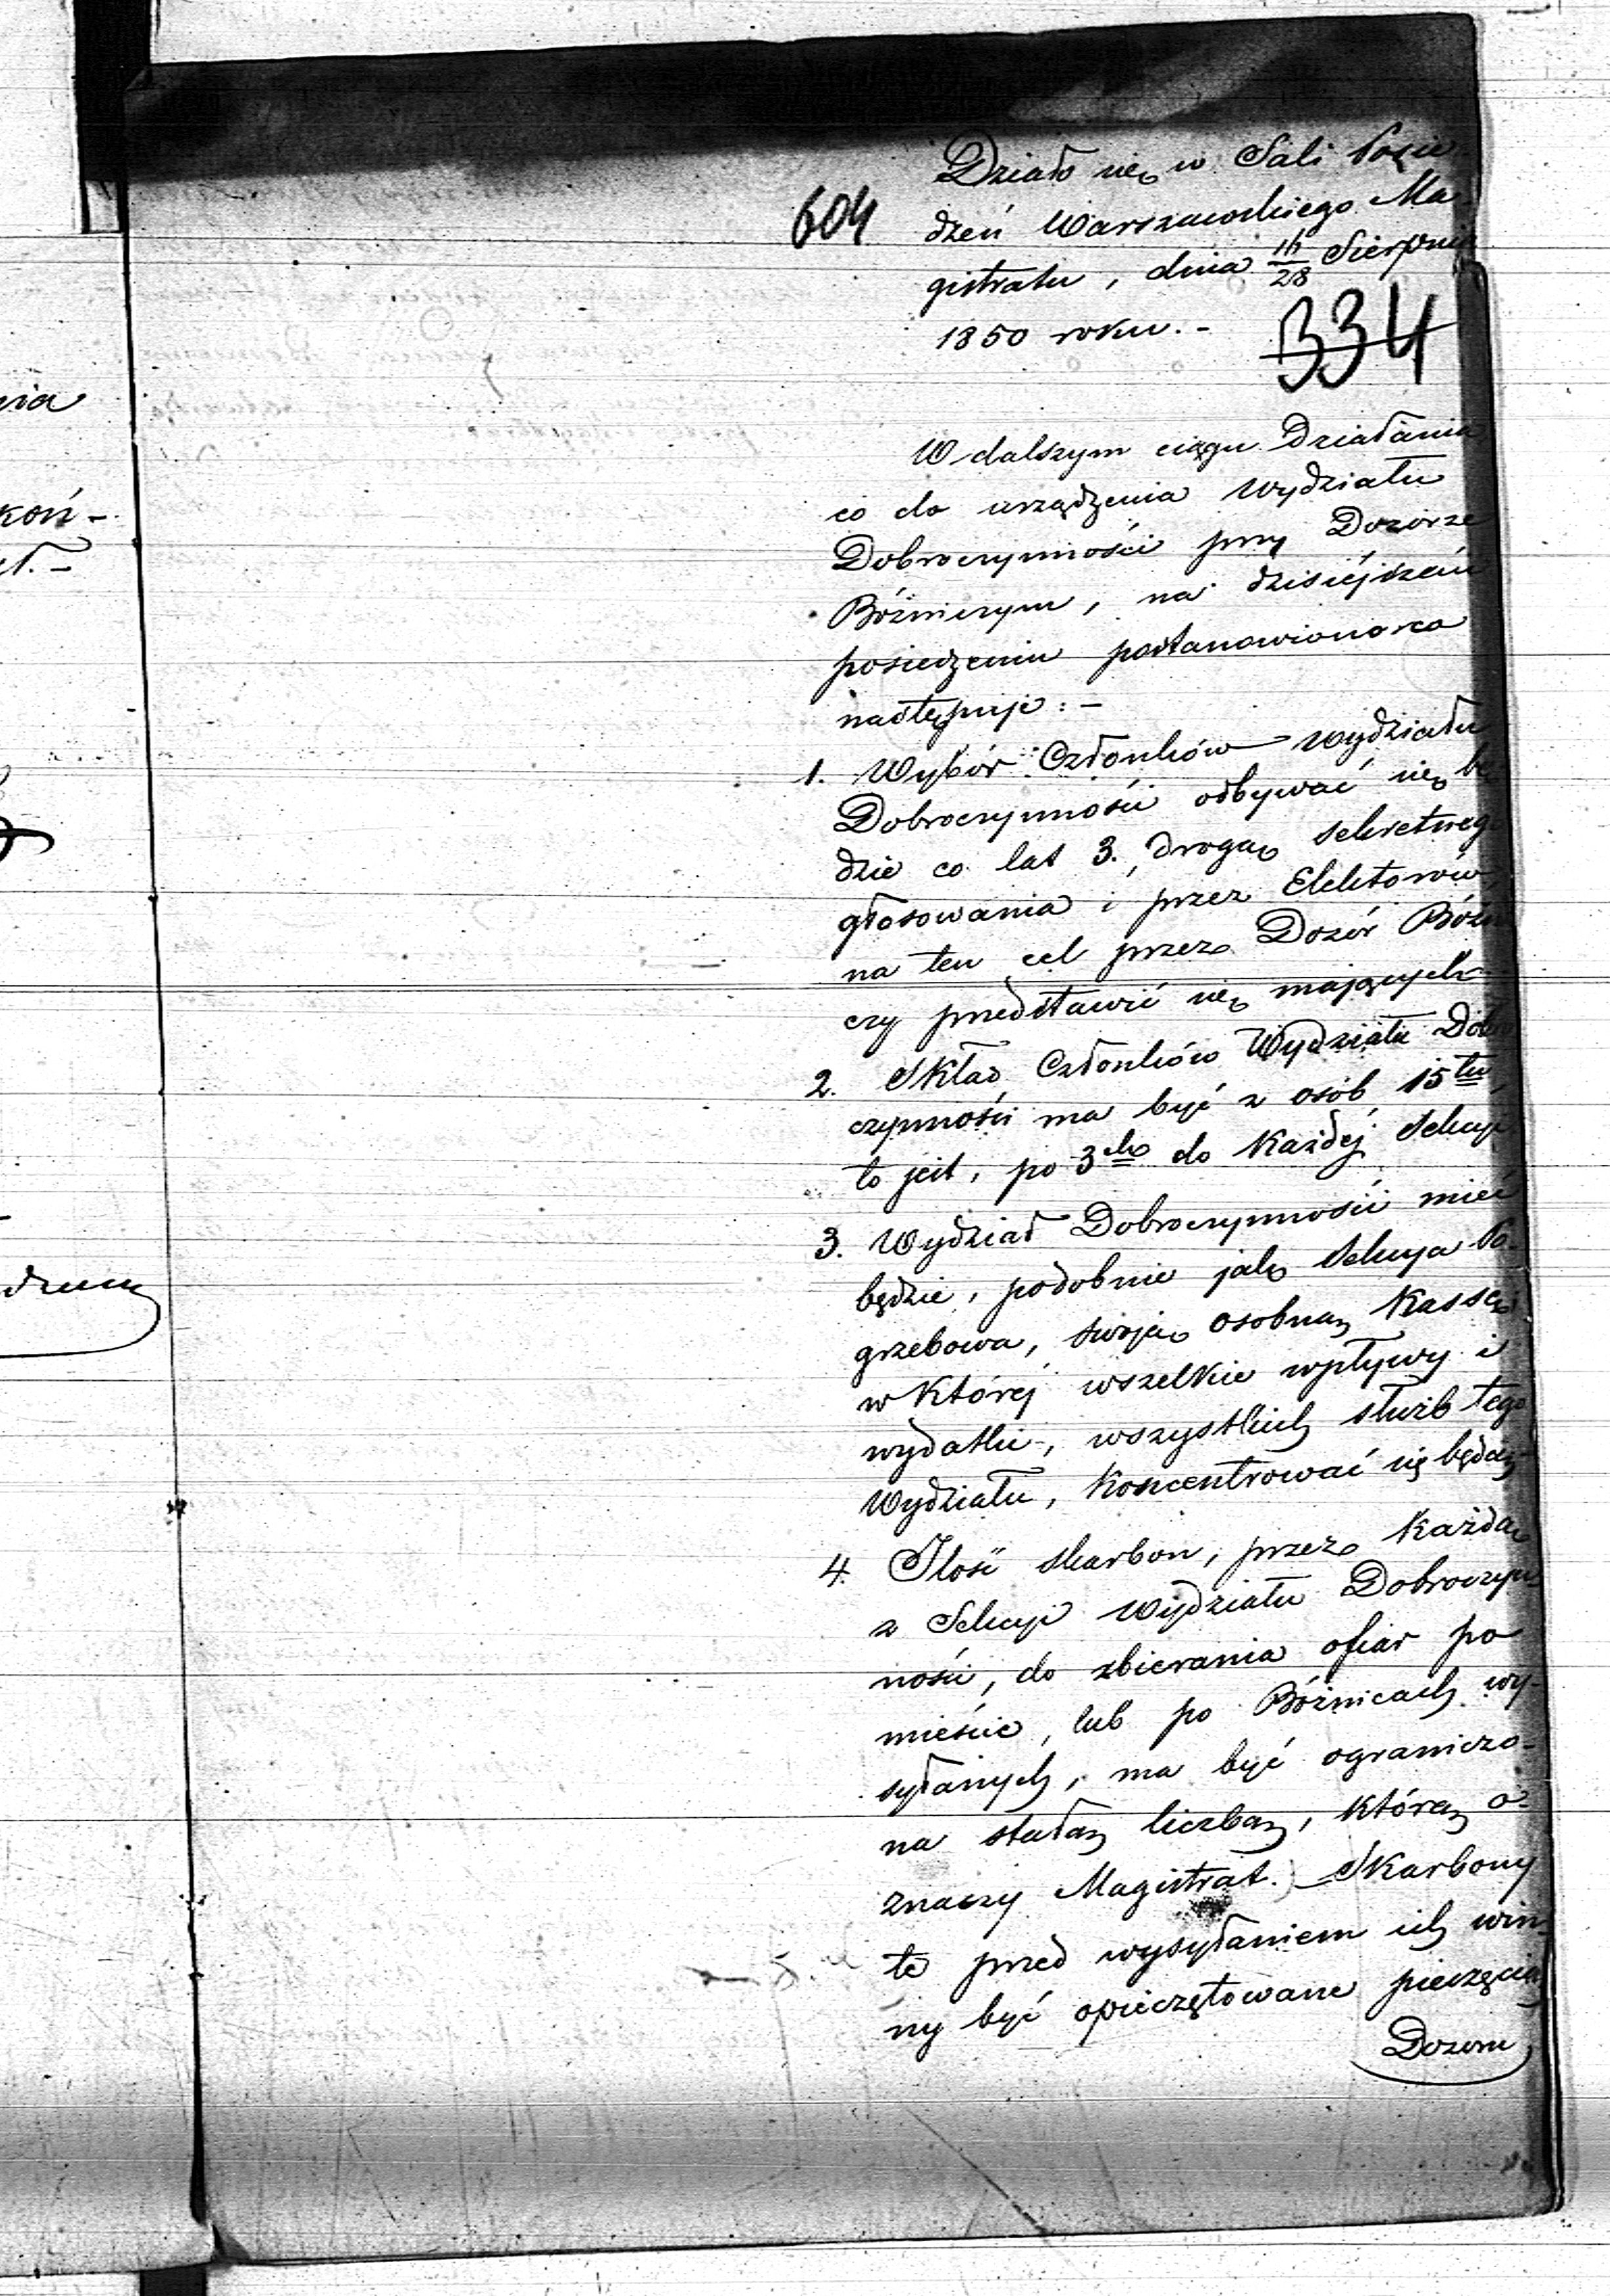 604
Działo się w Sali Posie
dzeń Warszawskiego Ma-
gistratu, dnia 16/28 Sierpnia
1850 roku. -
334
W dalszym ciągu Działania
co do urządzenia Wydziału
Dobroczynności przy Dozorze
Bóżniczym, na dzisiéjszém
posiedzeniu postanowiono co
następuje: -
1. Wybór Członków Wydziału
Dobroczynności odbywać się bę
dzie co lat 3. drogą sekretnego
głosowania i przez Elektorów,
na ten cel przez Dozór Bóżn
czy przedstawić się mających
2. Skład Członków Wydziału Dobro
czynności ma być z osób 15tu,
to jest, po 3ch do Każdéj Sekcyi
3. Wydział Dobroczynności mieć
będzie, podobnie jak Sekcya Po-
grzebowa, swoją osobną Kassę
w Któréj wszelkie wpływy i
wydatki, wszystkich służb tego
Wydziału, Koncentrować się będą
4. Ilość skarbon, przez Każdą
z Sekcyi Wydziału Dobroczyn
ności, do zbierania ofiar po
mieście, lub po Bóżnicach wy-
syłanych, ma być ograniczo-
na stałą liczbą, którą o-
znaczy Magistrat. - Skarbony
te przed wysyłaniem ich win
ny być opieczętowane pieczęcią
Dozoru
nia
koń-
drum